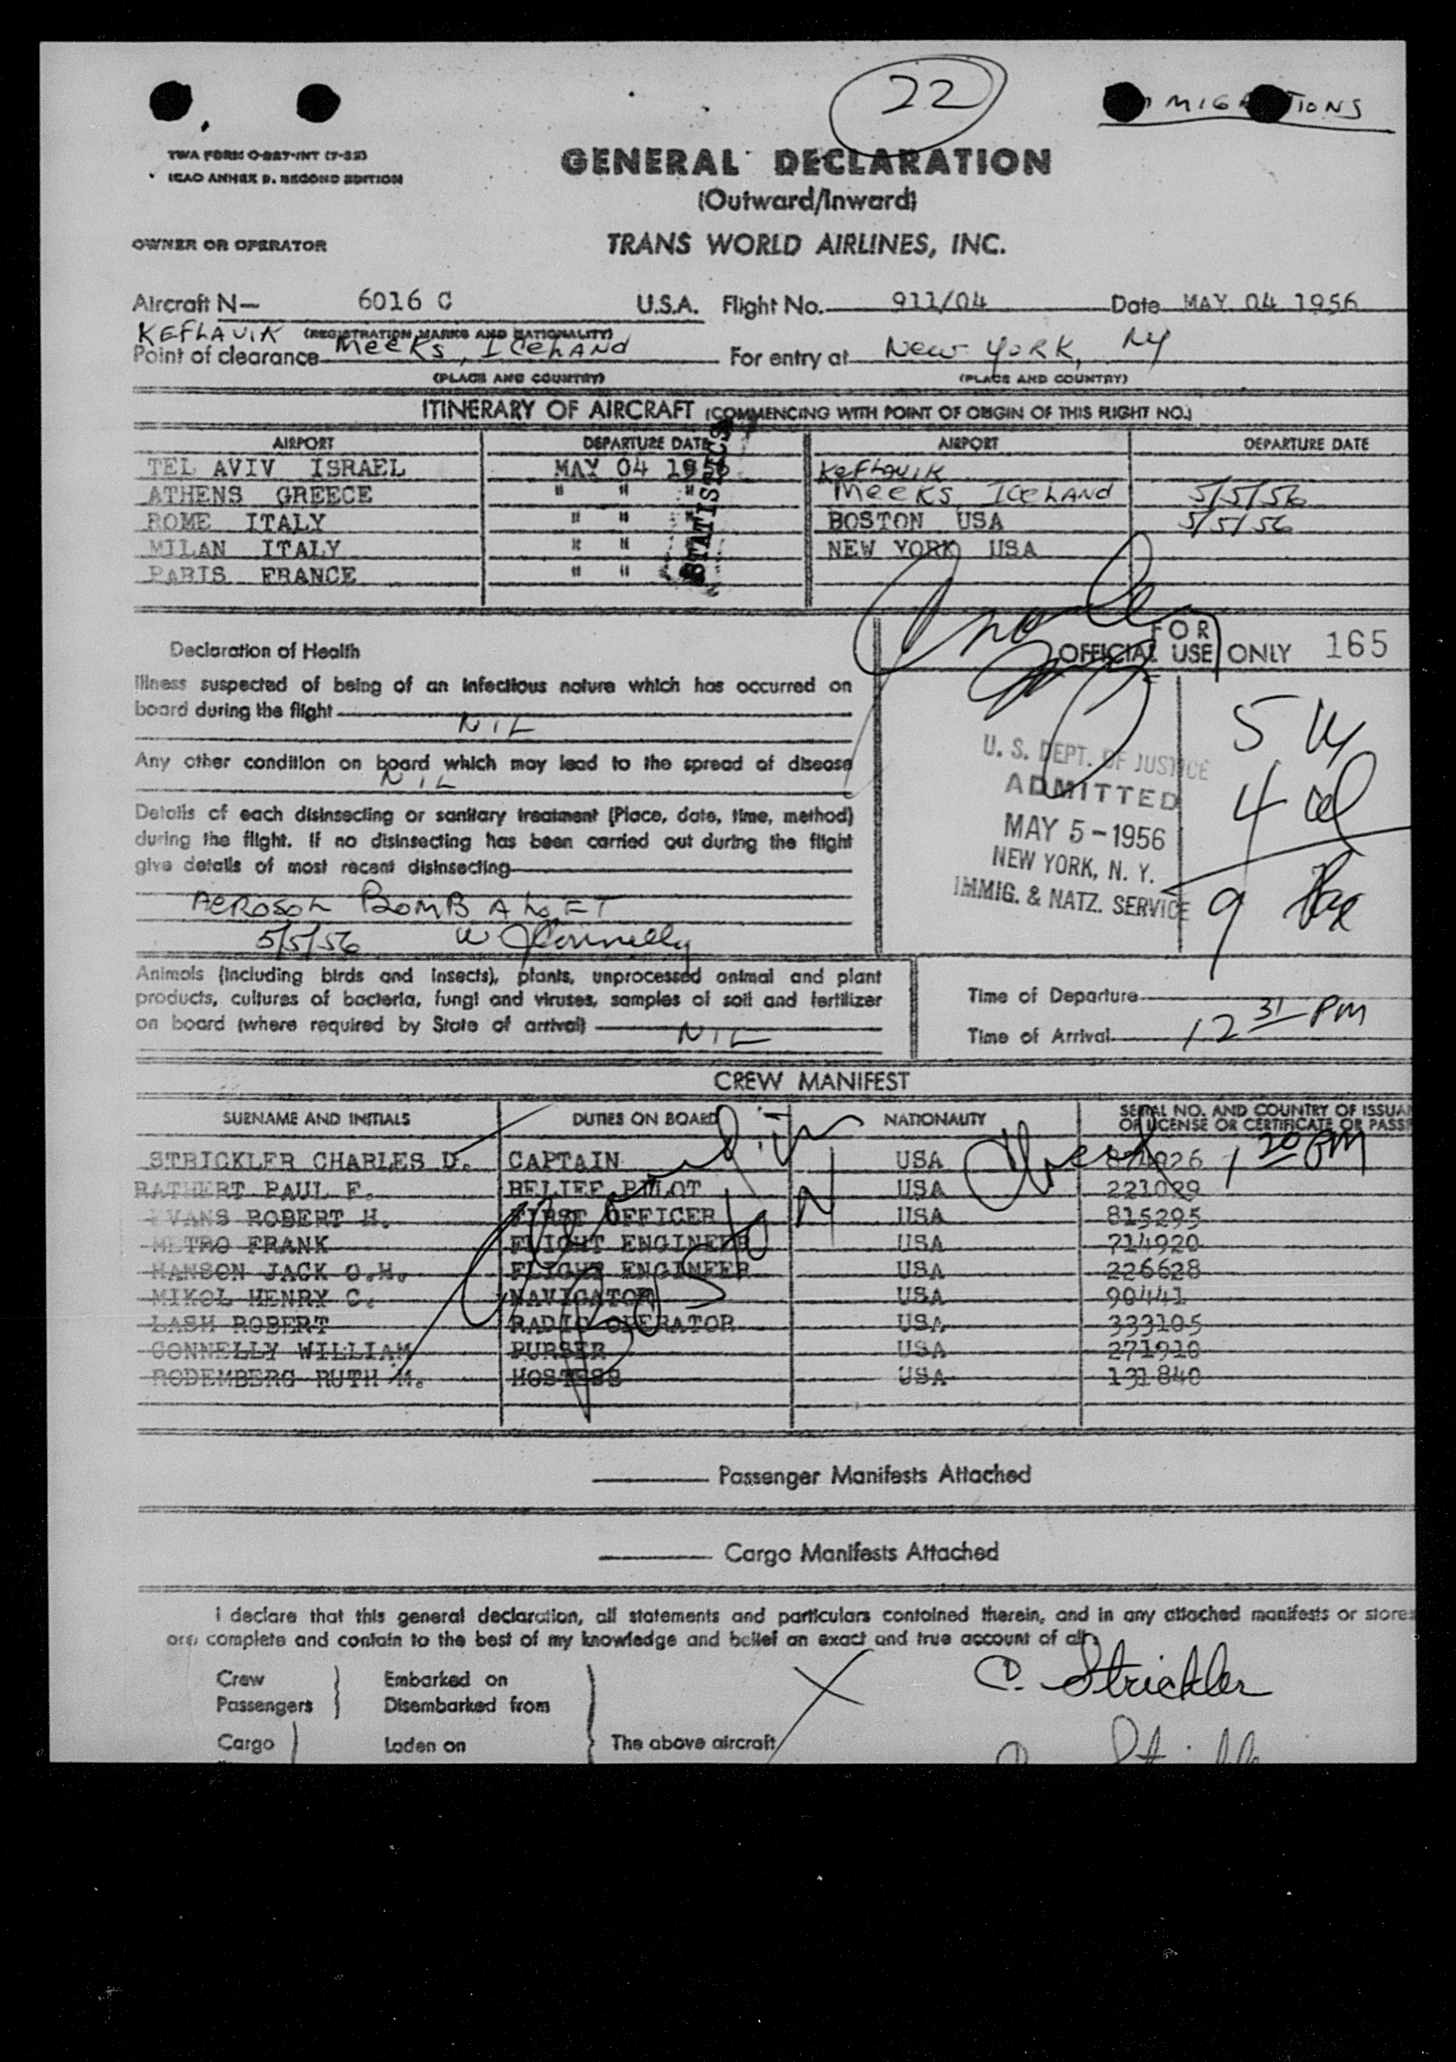 22
MIGRATIONS
TWA FORM O-827-INT (7-52)
ICAO ANNEX 9. SECOND EDITION
GENERAL DECLARATION
(Outward/Inward)
OWNER OR OPERATOR
TRANS WORLD AIRLINES, INC.
Aircraft N— 6016 C U.S.A. Flight No. 911/04 Date MAY 04 1956
KEFLAVIK (REGISTRATION MARKS AND NATIONALITY)
Point of clearance Meeks, Iceland For entry at New York, NY
(PLACE AND COUNTRY) (PLACE AND COUNTRY)
ITINERARY OF AIRCRAFT (COMMENCING WITH POINT OF ORIGIN OF THIS FLIGHT NO.)
AIRPORT DEPARTURE DATE AIRPORT DEPARTURE DATE
TEL AVIV ISRAEL MAY 04 1956 Keflavik
ATHENS GREECE " " " Meeks Iceland 5/5/56
ROME ITALY " " " BOSTON USA 5/5/56
MILAN ITALY " " NEW YORK USA
PARIS FRANCE " "
STATISTICS
FOR
OFFICIAL USE ONLY 165
Declaration of Health
Illness suspected of being of an infectious nature which has occurred on
board during the flight
NIL
Any other condition on board which may lead to the spread of disease
NIL
Details of each disinsecting or sanitary treatment (Place, date, time, method)
during the flight. If no disinsecting has been carried out during the flight
give details of most recent disinsecting
AEROSOL BOMB ALOFT
5/5/56 W J Connelly
U. S. DEPT. OF JUSTICE
ADMITTED
MAY 5-1956
NEW YORK, N. Y.
IMMIG. & NATZ. SERVICE
5
4
9
Animals (including birds and insects), plants, unprocessed animal and plant
products, cultures of bacteria, fungi and viruses, samples of soil and fertilizer
on board (where required by State of arrival) NIL
Time of Departure
Time of Arrival 12 31 PM
CREW MANIFEST
SURNAME AND INITIALS DUTIES ON BOARD NATIONALITY SERIAL NO. AND COUNTRY OF ISSUAN
OF LICENSE OR CERTIFICATE OR PASSP
1 20 PM
STRICKLER CHARLES D. CAPTAIN USA
RATHERT PAUL F. RELIEF PILOT USA 221089
EVANS ROBERT H. FIRST OFFICER USA 815295
METRO FRANK FLIGHT ENGINEER USA 714920
HANSON JACK O.H. FLIGHT ENGINEER USA 226628
MIKOL HENRY C. NAVIGATOR USA 90441
LASH ROBERT RADIO OPERATOR USA 333105
CONNELLY WILLIAM PURSER USA 271910
RODEMBERG RUTH M. HOSTESS USA 131840
BOSTON
Passenger Manifests Attached
Cargo Manifests Attached
I declare that this general declaration, all statements and particulars contained therein, and in any attached manifests or stores
are complete and contain to the best of my knowledge and belief an exact and true account of all:
Crew } Embarked on
Passengers } Disembarked from
C. Strickler
Cargo } Laden on } The above aircraft